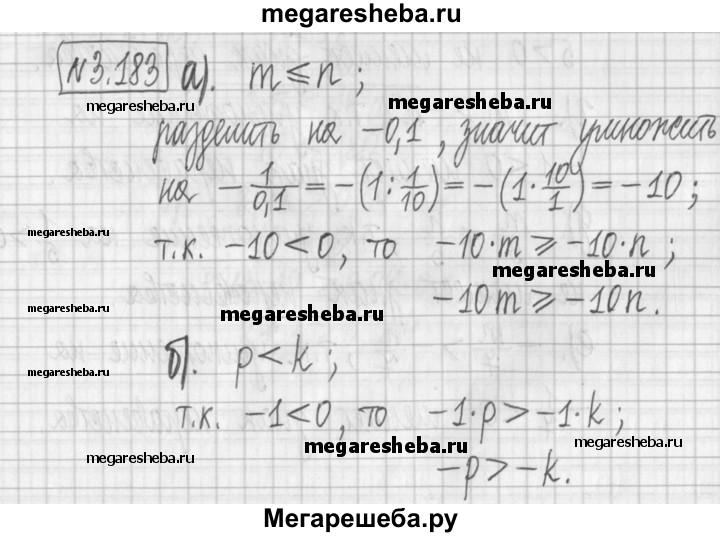 megaresheba.ru
№3.183 а). m ⩽ n ;
megaresheba.ru megaresheba.ru
разделить на −0,1 , значит умножить
на − 1/0,1 = −(1 : 1/10) = −(1 · 10/1) = −10 ;
megaresheba.ru megaresheba.ru
т.к. −10 < 0, то −10·m ⩾ −10·n ;
megaresheba.ru
−10m ⩾ −10n.
megaresheba.ru megaresheba.ru megaresheba.ru
б). p < k ;
megaresheba.ru megaresheba.ru
т.к. −1 < 0, то −1·p > −1·k ;
megaresheba.ru megaresheba.ru
−p > −k.
megaresheba.ru megaresheba.ru
Мегарешеба.ру